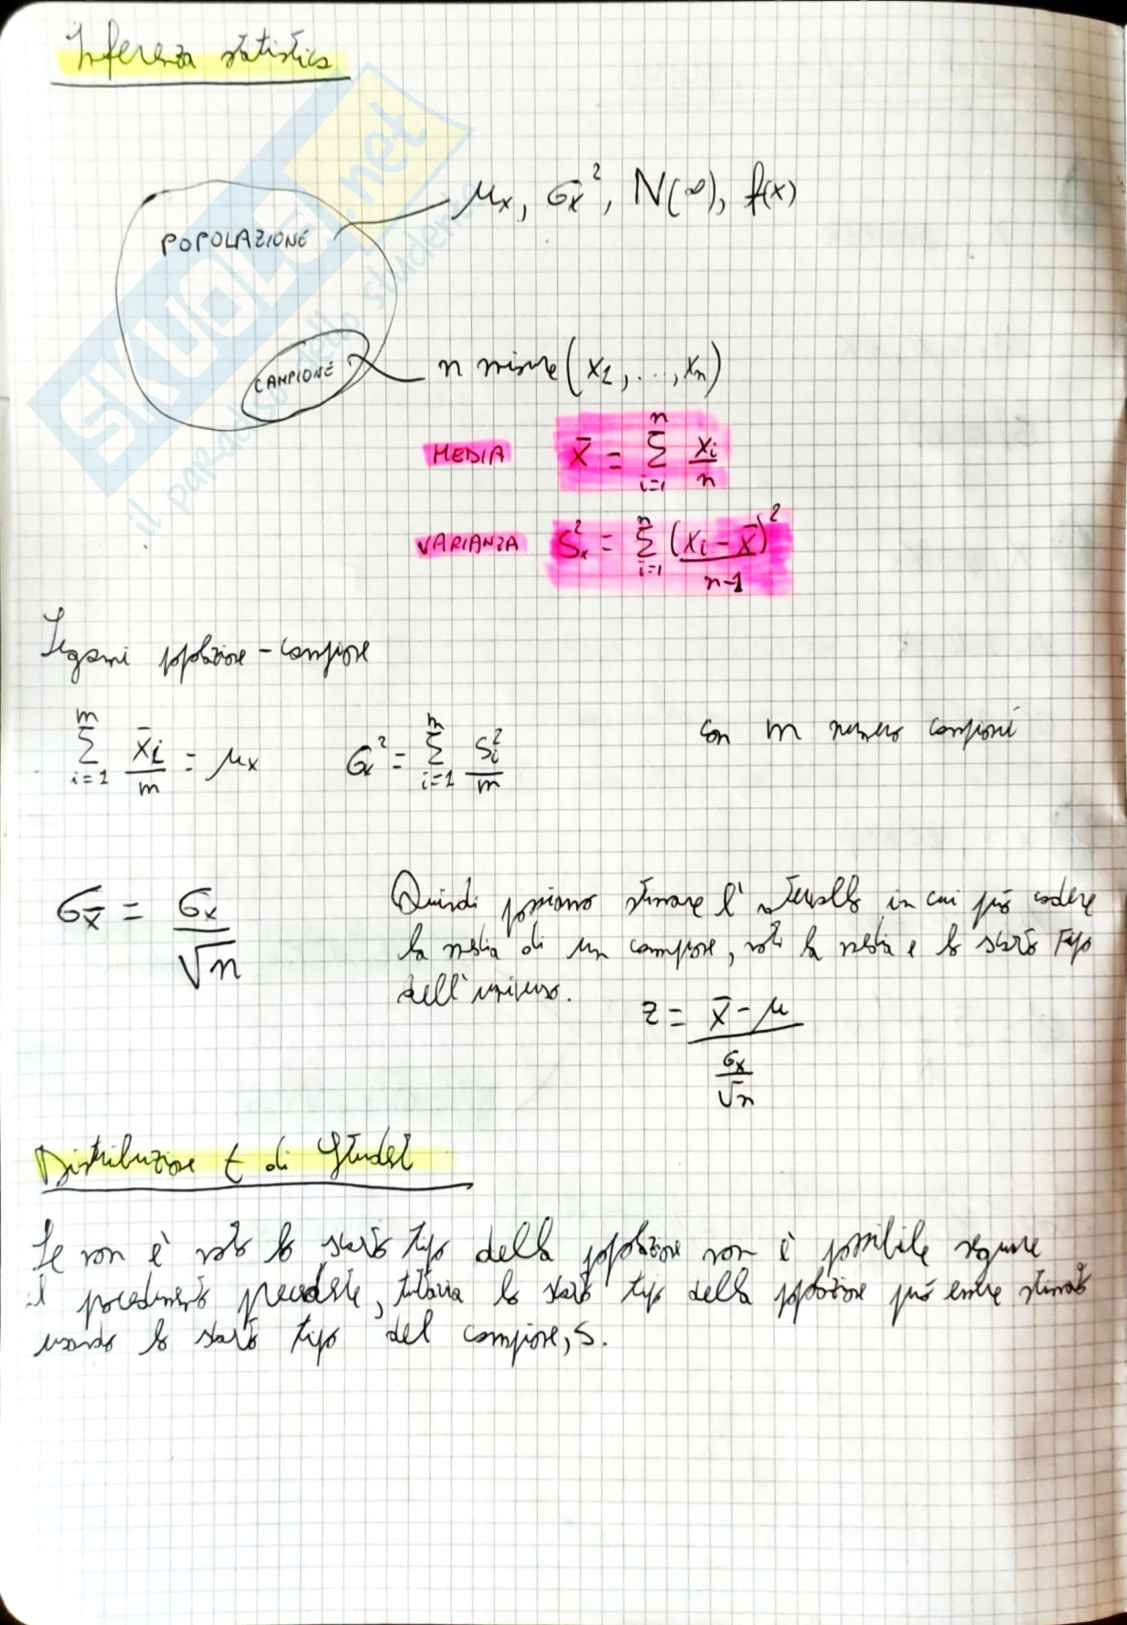 Inferenza statistica
μx, σx², N(∞), f(x)
POPOLAZIONE
CAMPIONE
n misure (x1, ..., xn)
MEDIA x̄ = Σ i=1 n xi/n
VARIANZA Sx² = Σ i=1 n (xi - x̄)²/n-1
Legami popolazione - campione
Σ i=1 m x̄i/m = μx σx² = Σ i=1 m Si²/m con m numero campioni
σx̄ = σx/√n
Quindi possiamo stimare l'intervallo in cui può cadere
la media di un campione, noti la media e lo scarto tipo
dell'universo.
z = x̄ - μ / σx/√n
Distribuzione t di Student
Se non è noto lo scarto tipo della popolazione non è possibile seguire
il procedimento precedente, tuttavia lo scarto tipo della popolazione può essere stimato
usando lo scarto tipo del campione, S.
SKUOLA.net
il paradiso dello studente